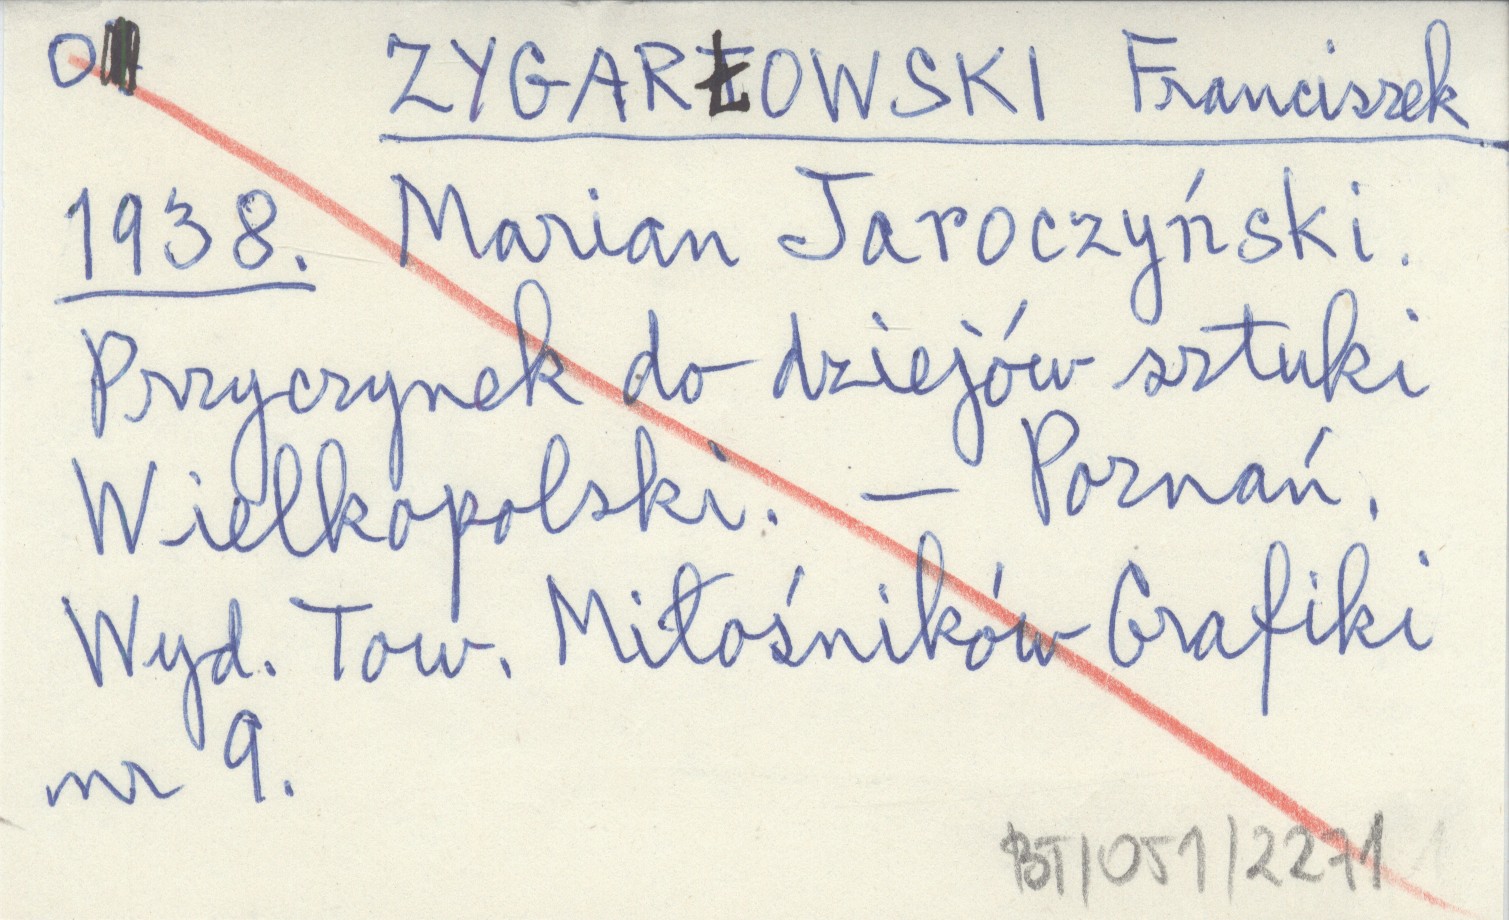 O ZYGARŁOWSKI Franciszek
1938. Marian Jaroczyński.
Przyczynek do dziejów sztuki
Wielkopolski. — Poznań.
Wyd. Tow. Miłośników Grafiki
nr 9.
BT/051/2271